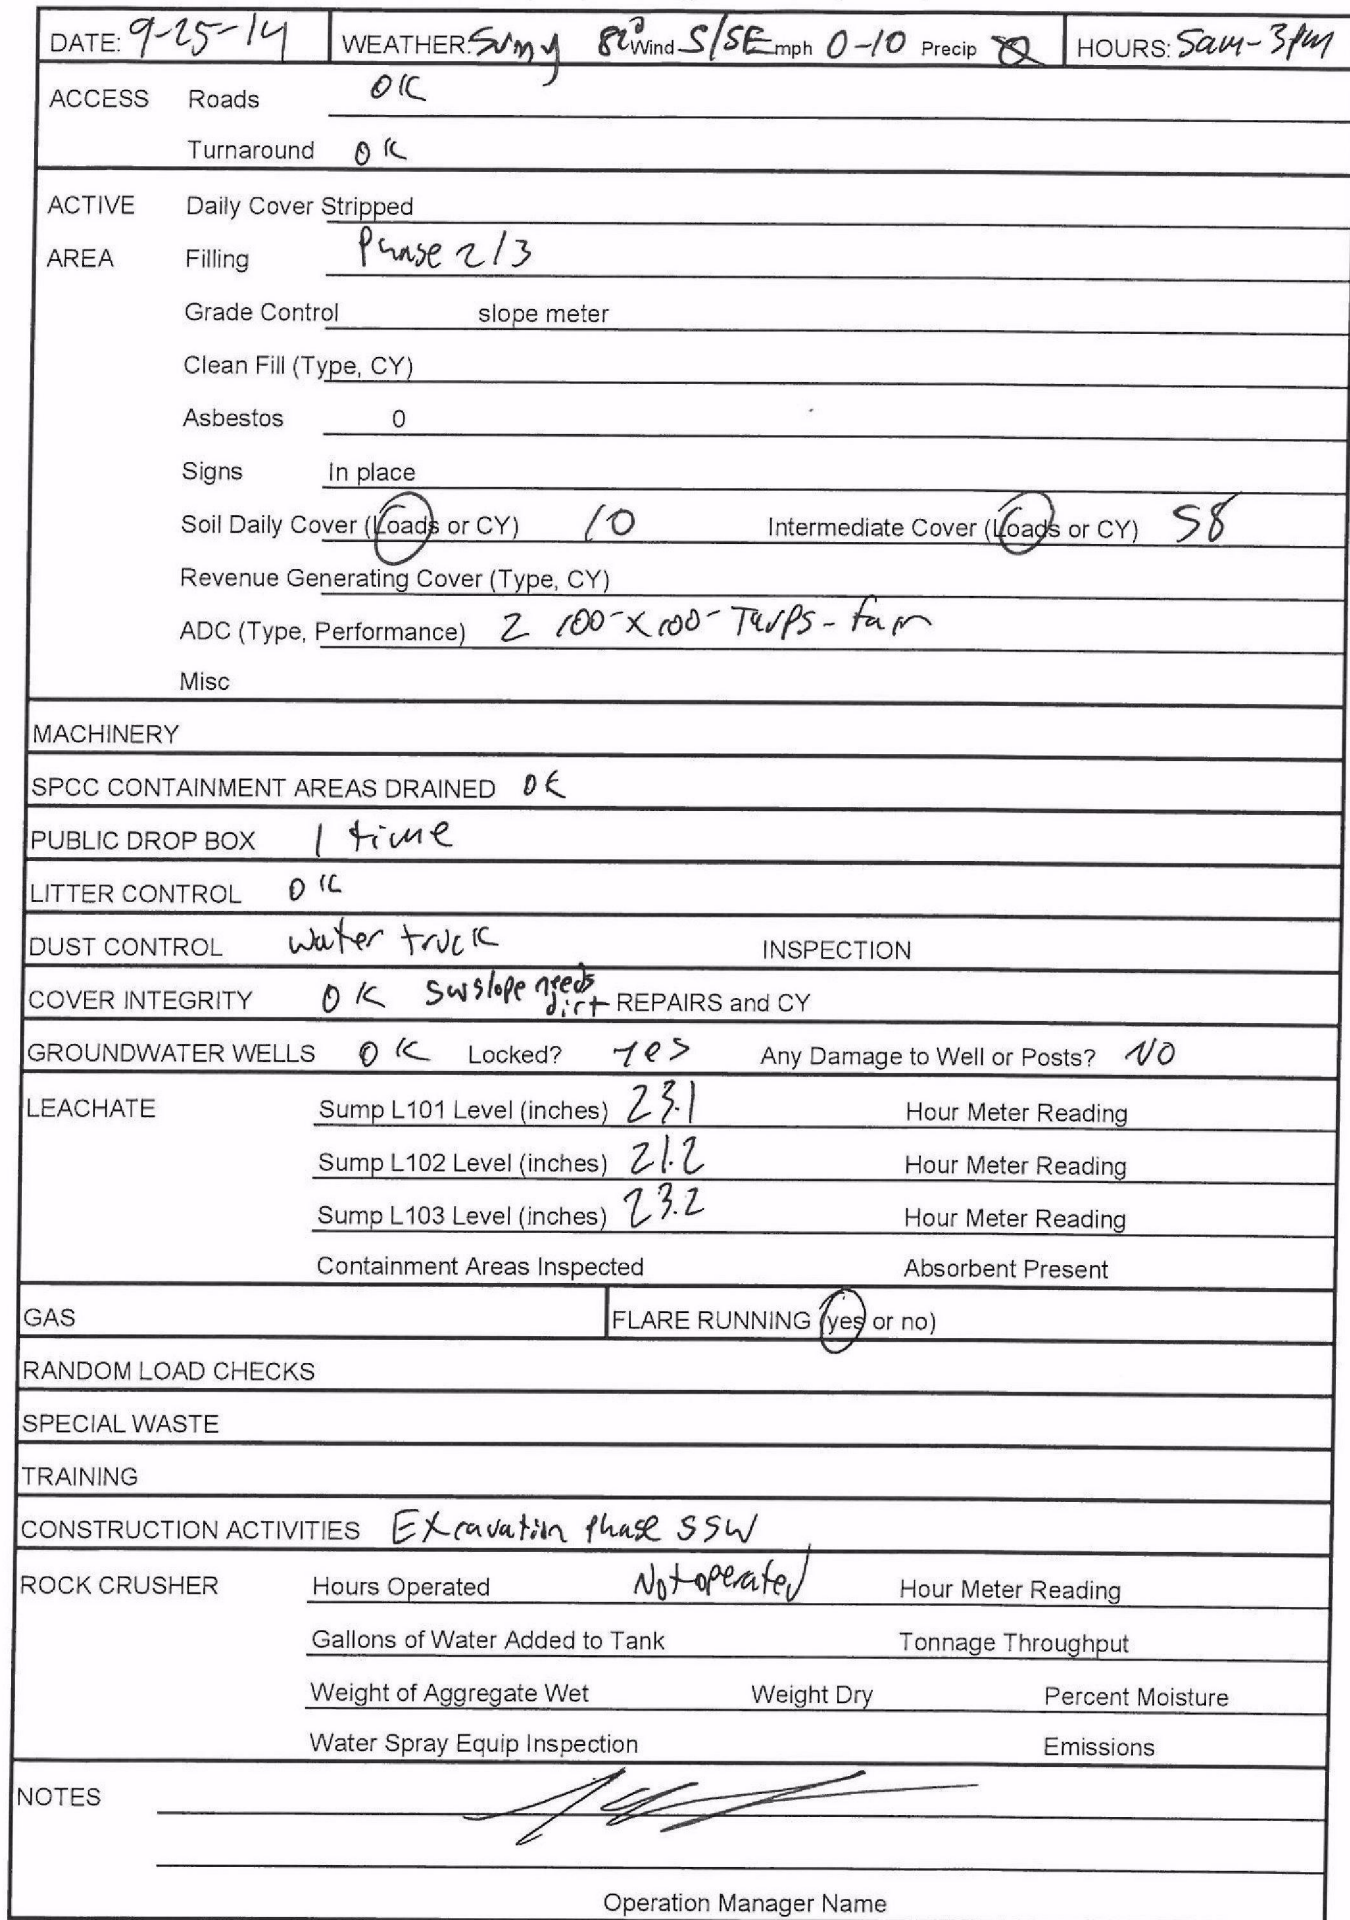 DATE: 9-25-14 WEATHER: Sunny 82° Wind S/SE mph 0-10 Precip 0 HOURS: 5am-3pm
ACCESS Roads OK
Turnaround OK
ACTIVE Daily Cover Stripped
AREA Filling Phase 2/3
Grade Control slope meter
Clean Fill (Type, CY)
Asbestos 0
Signs In place
Soil Daily Cover (Loads or CY) 10 Intermediate Cover (Loads or CY) 58
Revenue Generating Cover (Type, CY)
ADC (Type, Performance) 2 100-x100- Tarps-
Misc
MACHINERY
SPCC CONTAINMENT AREAS DRAINED OK
PUBLIC DROP BOX 1 time
LITTER CONTROL OK
DUST CONTROL water truck INSPECTION
COVER INTEGRITY OK SW slope needs dirt REPAIRS and CY
GROUNDWATER WELLS OK Locked? Yes Any Damage to Well or Posts? NO
LEACHATE Sump L101 Level (inches) 23.1 Hour Meter Reading
Sump L102 Level (inches) 21.2 Hour Meter Reading
Sump L103 Level (inches) 23.2 Hour Meter Reading
Containment Areas Inspected Absorbent Present
GAS FLARE RUNNING (yes or no)
RANDOM LOAD CHECKS
SPECIAL WASTE
TRAINING
CONSTRUCTION ACTIVITIES Excavation phase SSW
ROCK CRUSHER Hours Operated Not operated Hour Meter Reading
Gallons of Water Added to Tank Tonnage Throughput
Weight of Aggregate Wet Weight Dry Percent Moisture
Water Spray Equip Inspection Emissions
NOTES
Operation Manager Name